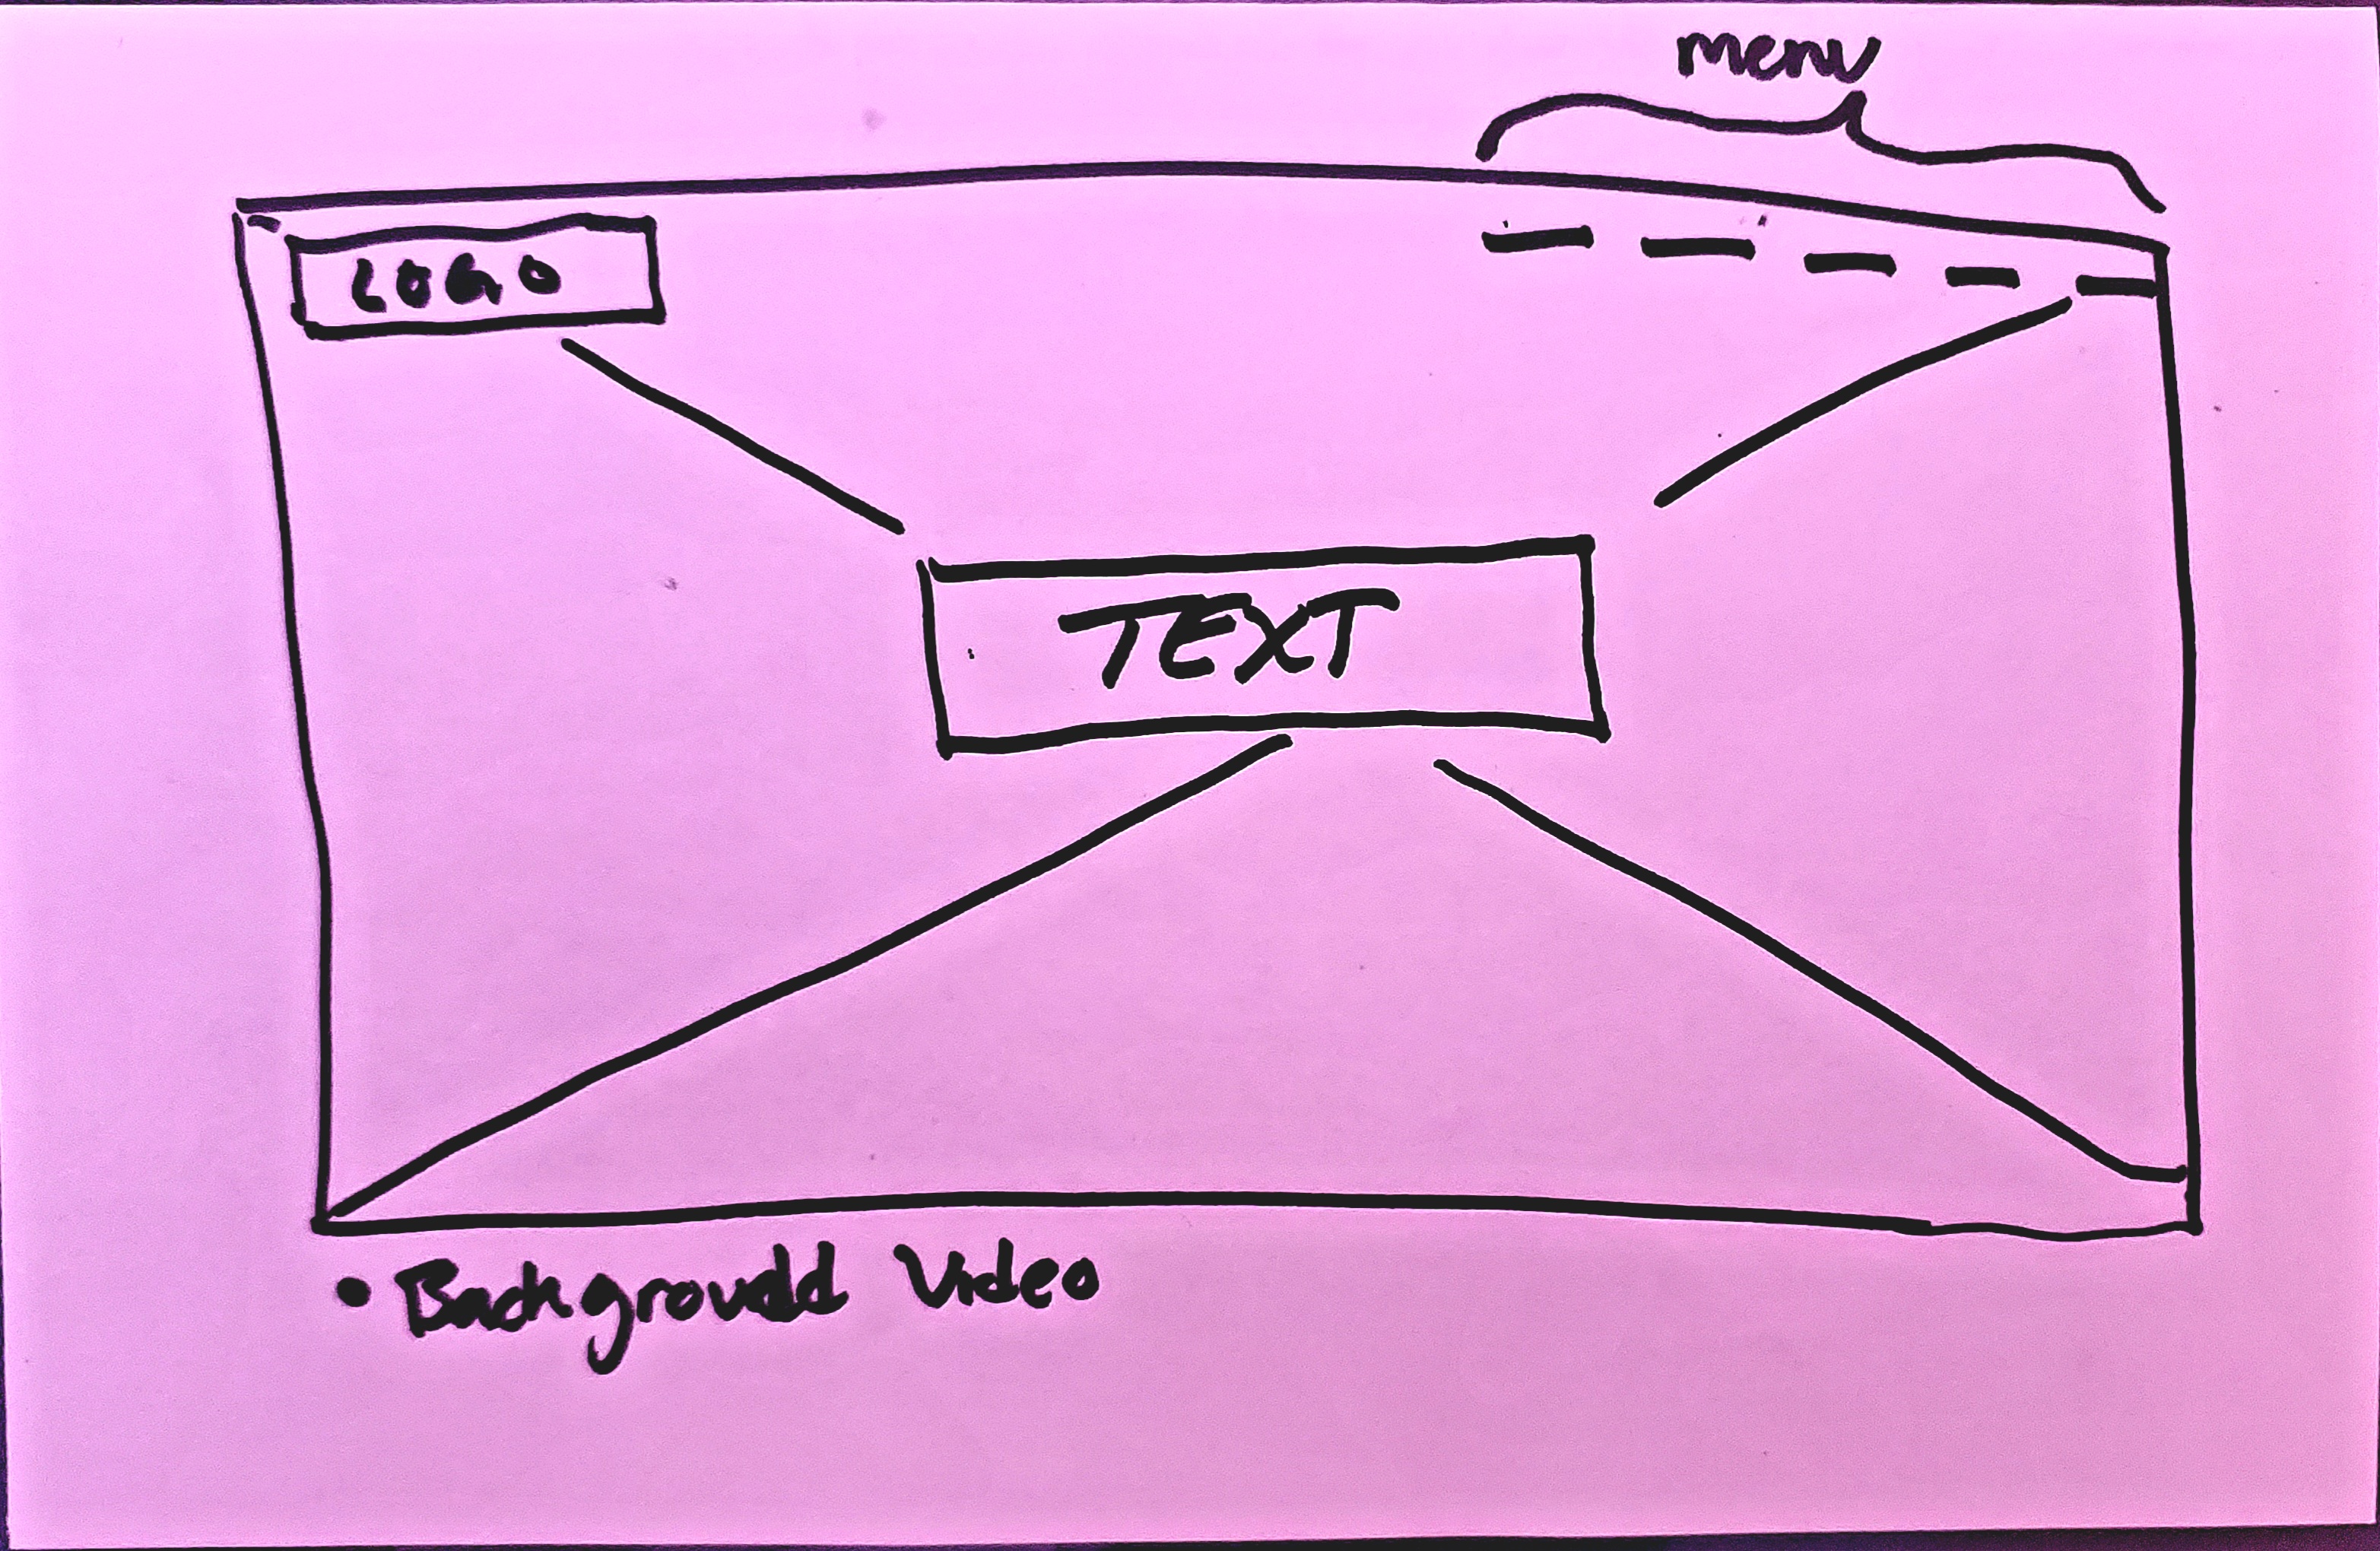 menu
LOGO
TEXT
• Backgroudd Video